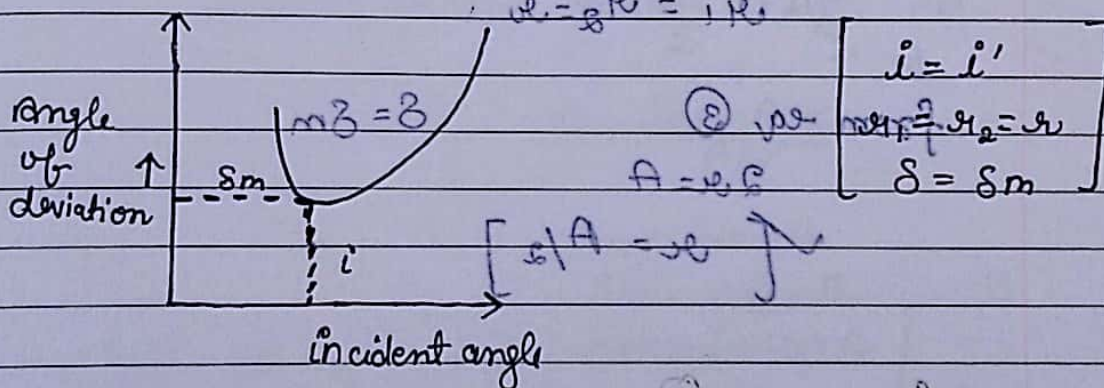 Angle
of
deviation ↑
δm
i
incident angle
i = i'
r₂ = r
δ = δm